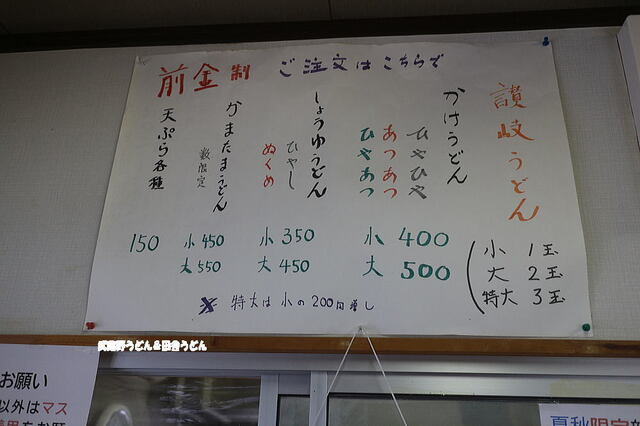 前金制 ご注文はこちらで
讃岐うどん
(小 1玉
大 2玉
特大 3玉
かけうどん
ひやひや
あつあつ
ひやあつ
小 400
大 500
しょうゆうどん
ひやし
ぬくめ
小 350
大 450
かまたまうどん
数限定
小 450
大 550
天ぷら各種
150
※ 特大は小の200円増し
武蔵野うどん&田舎うどん
お願い
以外はマス
夏秋限定